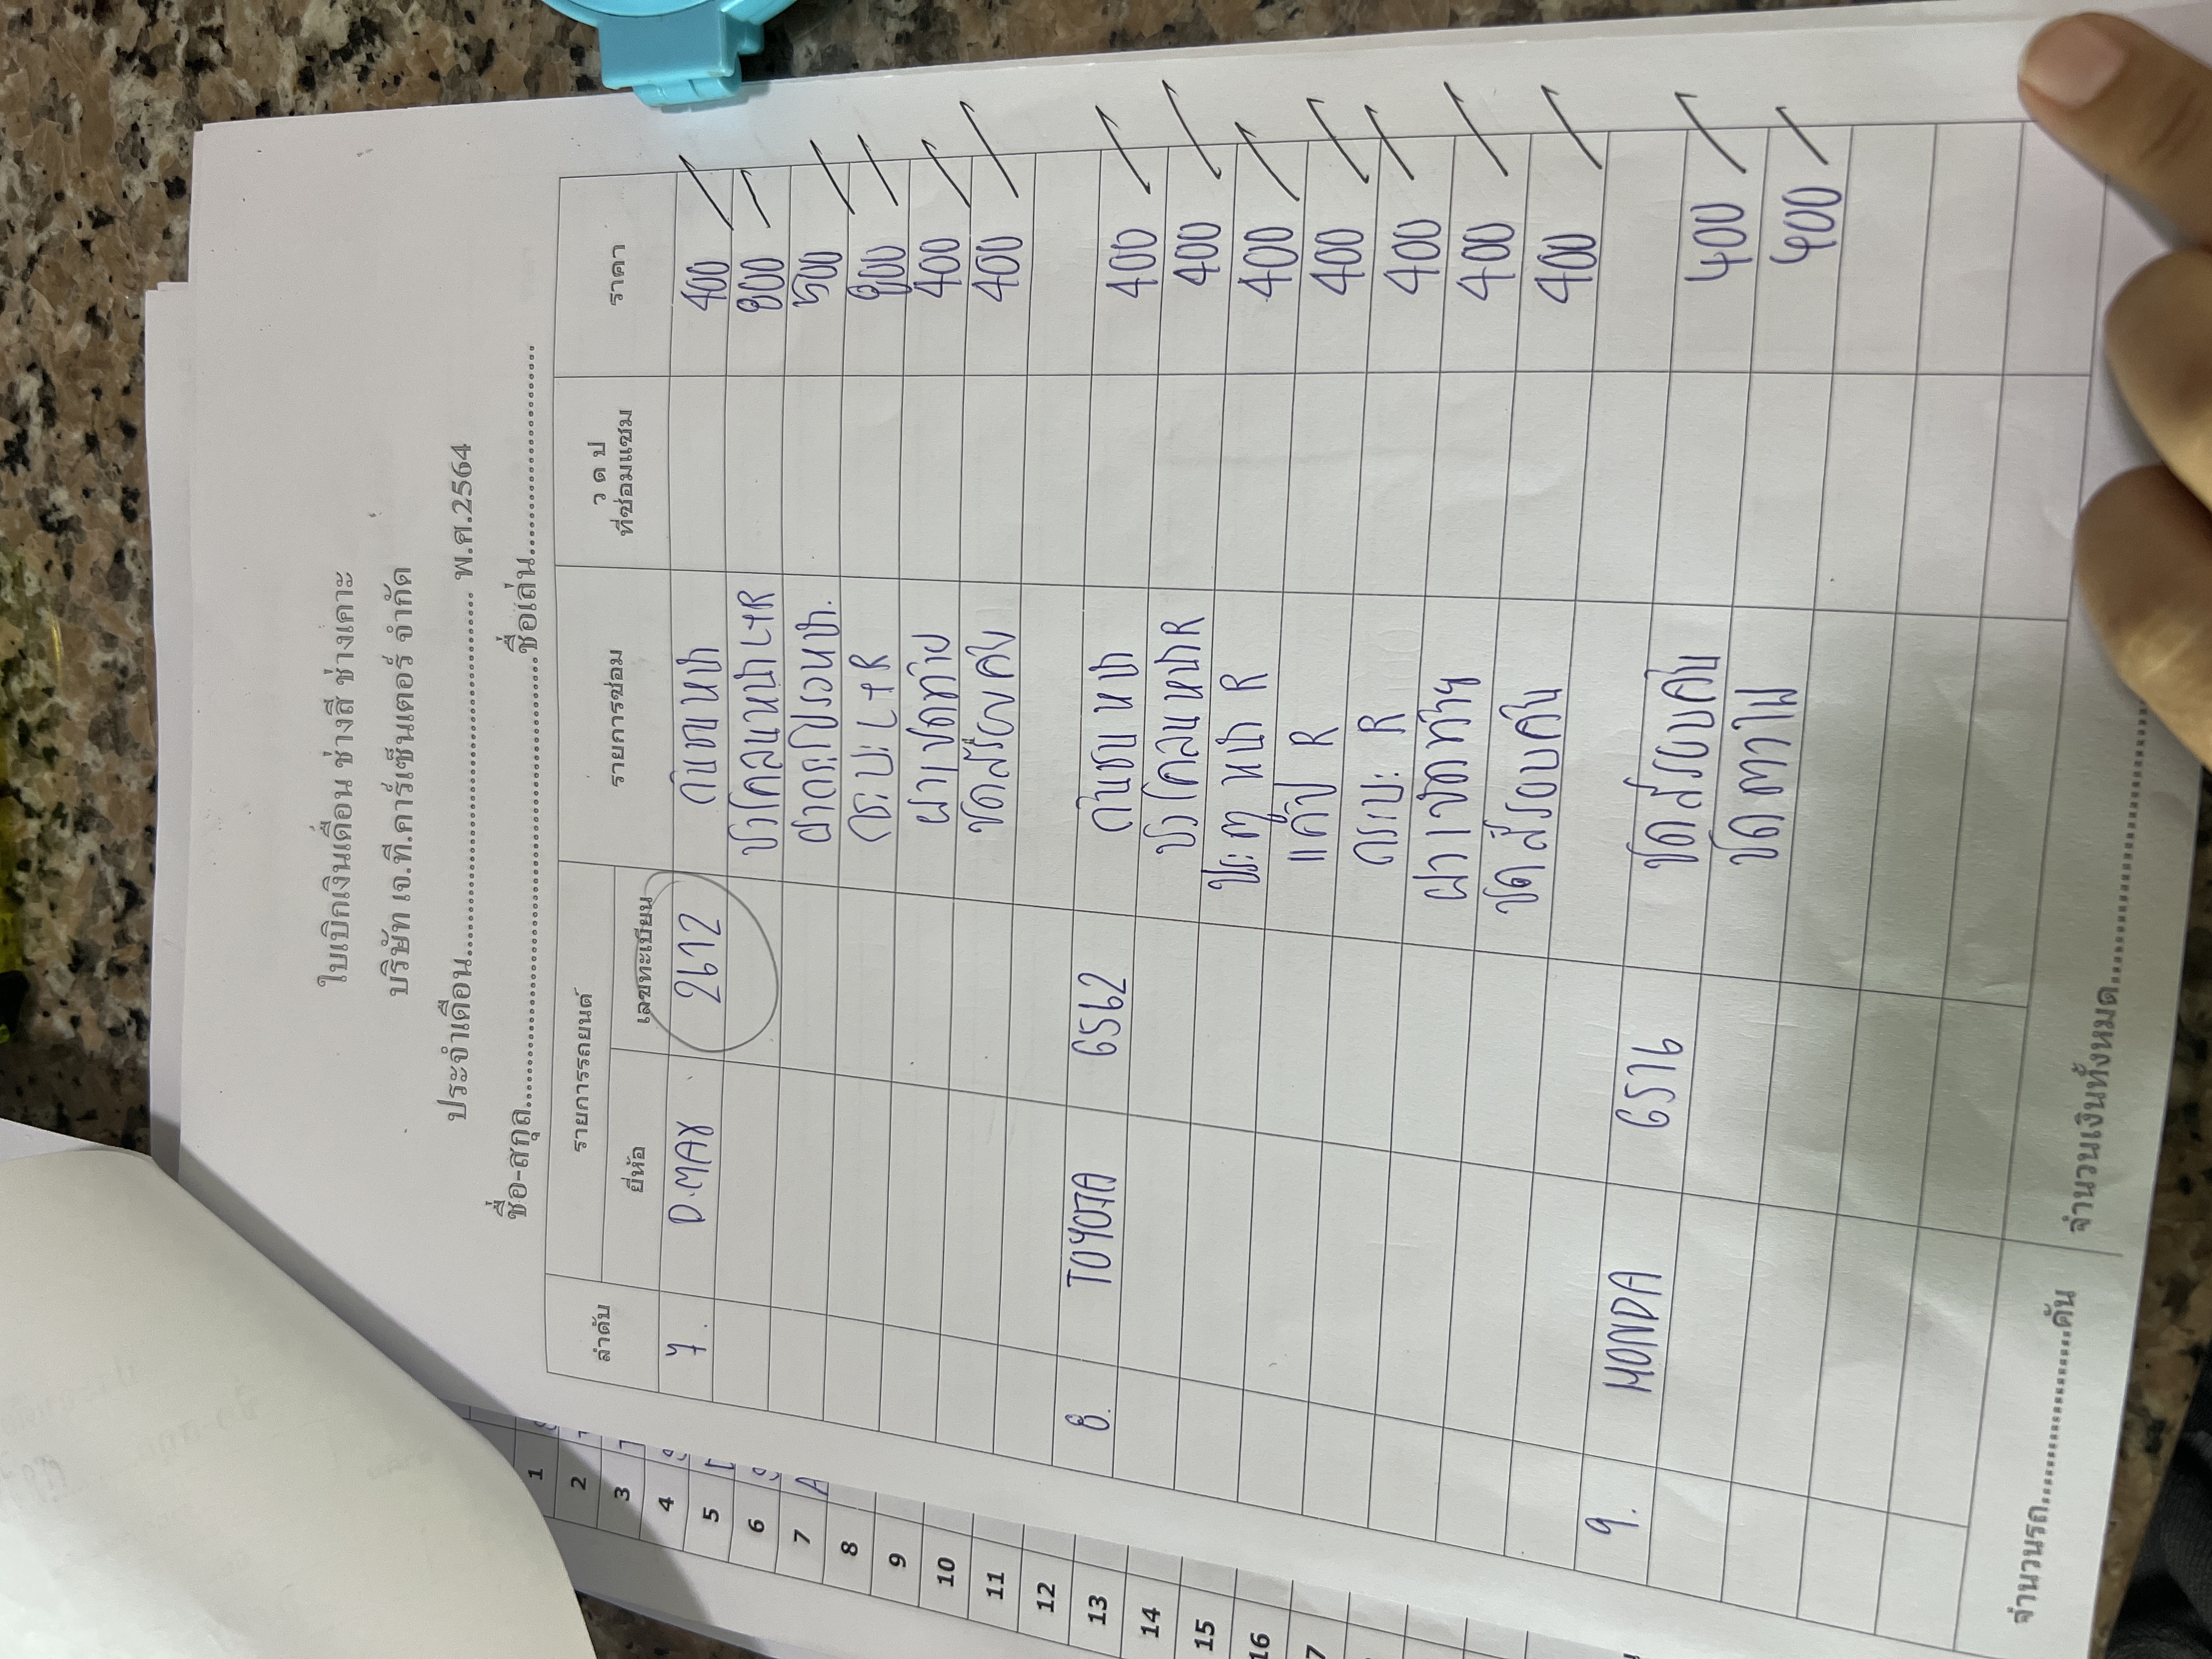 ใบเบิกเงินเดือน ช่างสี ช่างเคาะ
บริษัท เจ.ที.คาร์เซ็นเตอร์ จำกัด
ประจำเดือน.................................... พ.ศ.2564
ชื่อ-สกุล....................................ชื่อเล่น....................
ลำดับ รายการรถยนต์ รายการซ่อม ว ด ป ที่ซ่อมแซม ราคา
ยี่ห้อ เลขทะเบียน
7. D.MAX 2612 กันชนหน้า 400
บังโคลนหน้า L+R 800
ฝากระโปรงหน้า. 500
กระบะ L+R 800
ฝาเปิดท้าย 400
ขัดสีรอบคัน 400
8. TOYOTA 6562 กันชนหน้า 400
บังโคลนหน้า R 400
ประตูหน้า R 400
แค๊ป R 400
กระบะ R 400
ฝาเปิดท้าย 400
ขัดสีรอบคัน 400
9. HONDA 6516
ขัดสีรอบคัน 400
ขัดตาไฟ 400
จำนวนรถ....................คัน จำนวนเงินทั้งหมด....................
1
2
3
4
5
6
7
8
9
10
11
12
13
14
15
16